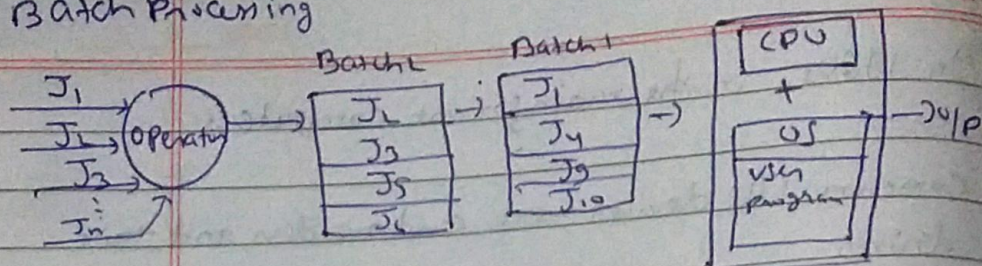 Batch Processing
J1
J2
J3
Jn
Operator
Batch2
J2
J3
J5
J6
Batch1
J1
J4
J9
J10
CPU
+
OS
User
program
O/P